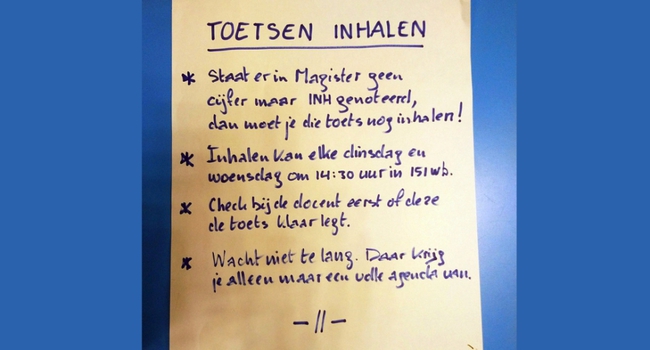 TOETSEN INHALEN
* Staat er in Magister geen
cijfer maar INH genoteerd,
dan moet je die toets nog inhalen!
* Inhalen kan elke dinsdag en
woensdag om 14:30 uur in 151wb.
* Check bij de docent eerst of deze
de toets klaar legt.
* Wacht niet te lang. Daar krijg
je alleen maar een volle agenda van.
-//-